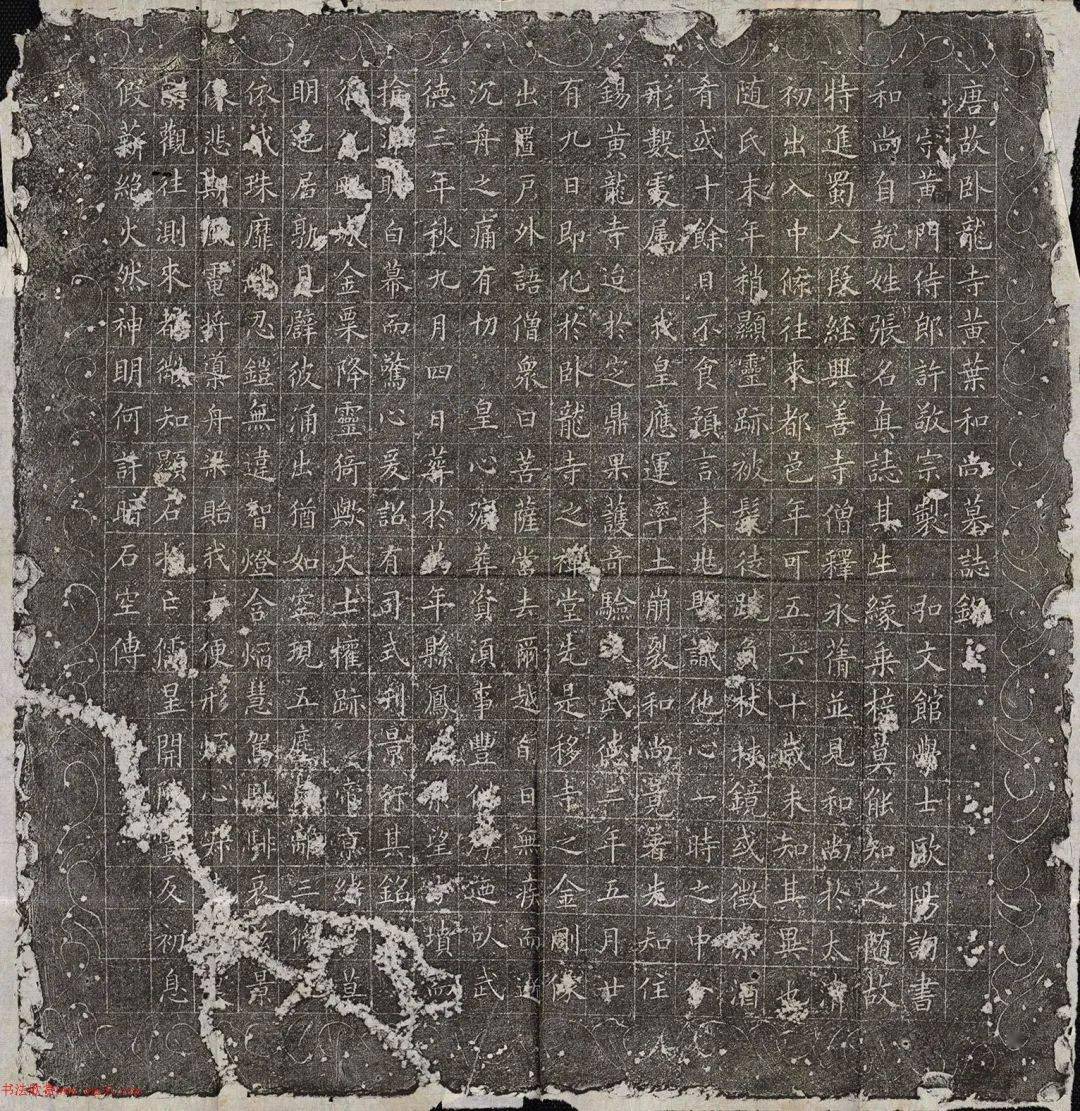 唐故卧龍寺黄葉和尚墓誌銘
宗黄門侍郎許敬宗製 弘文館學士歐陽詢書
和尚自說姓張名真誌其生緣桑梓莫能知之随故
特進蜀人段經興善寺僧釋永蒨並見和尚於太清
初出入中條往來都邑年可五六十歲未知其異也
随氏末年稍顯靈跡被髮徒跣負杖挾鏡或徵索酒
肴或十餘日不食預言未兆識他心一時之中分
形數處属我皇應運率土崩裂和尚竟著先知住
錫黄龍寺迨於定鼎果護奇驗武德二年五月廿
有九日即化於卧龍寺之禪堂先是移寺之金剛像
出置戸外語僧衆曰菩薩當去爾越旬日無疾而逝
沉舟之痛有切 皇心殯葬資須事豐 迤以武
德三年秋九月四日葬於萬年縣鳳 望 墳而
白幕而驚心爰詔有司式刊景行其銘
金粟降靈猗歟大士權跡帝京緒
明 迤居孰見 辟彼涌出猶如空現五
依我珠靡 忍鎧無違智燈含焰慧駕馳騑哀 景
悲斯風電將導舟梁貽我 便形煩心
觀往測來 知顯 儒呈開 反初息
假薪絶火然神明何許 石空傳